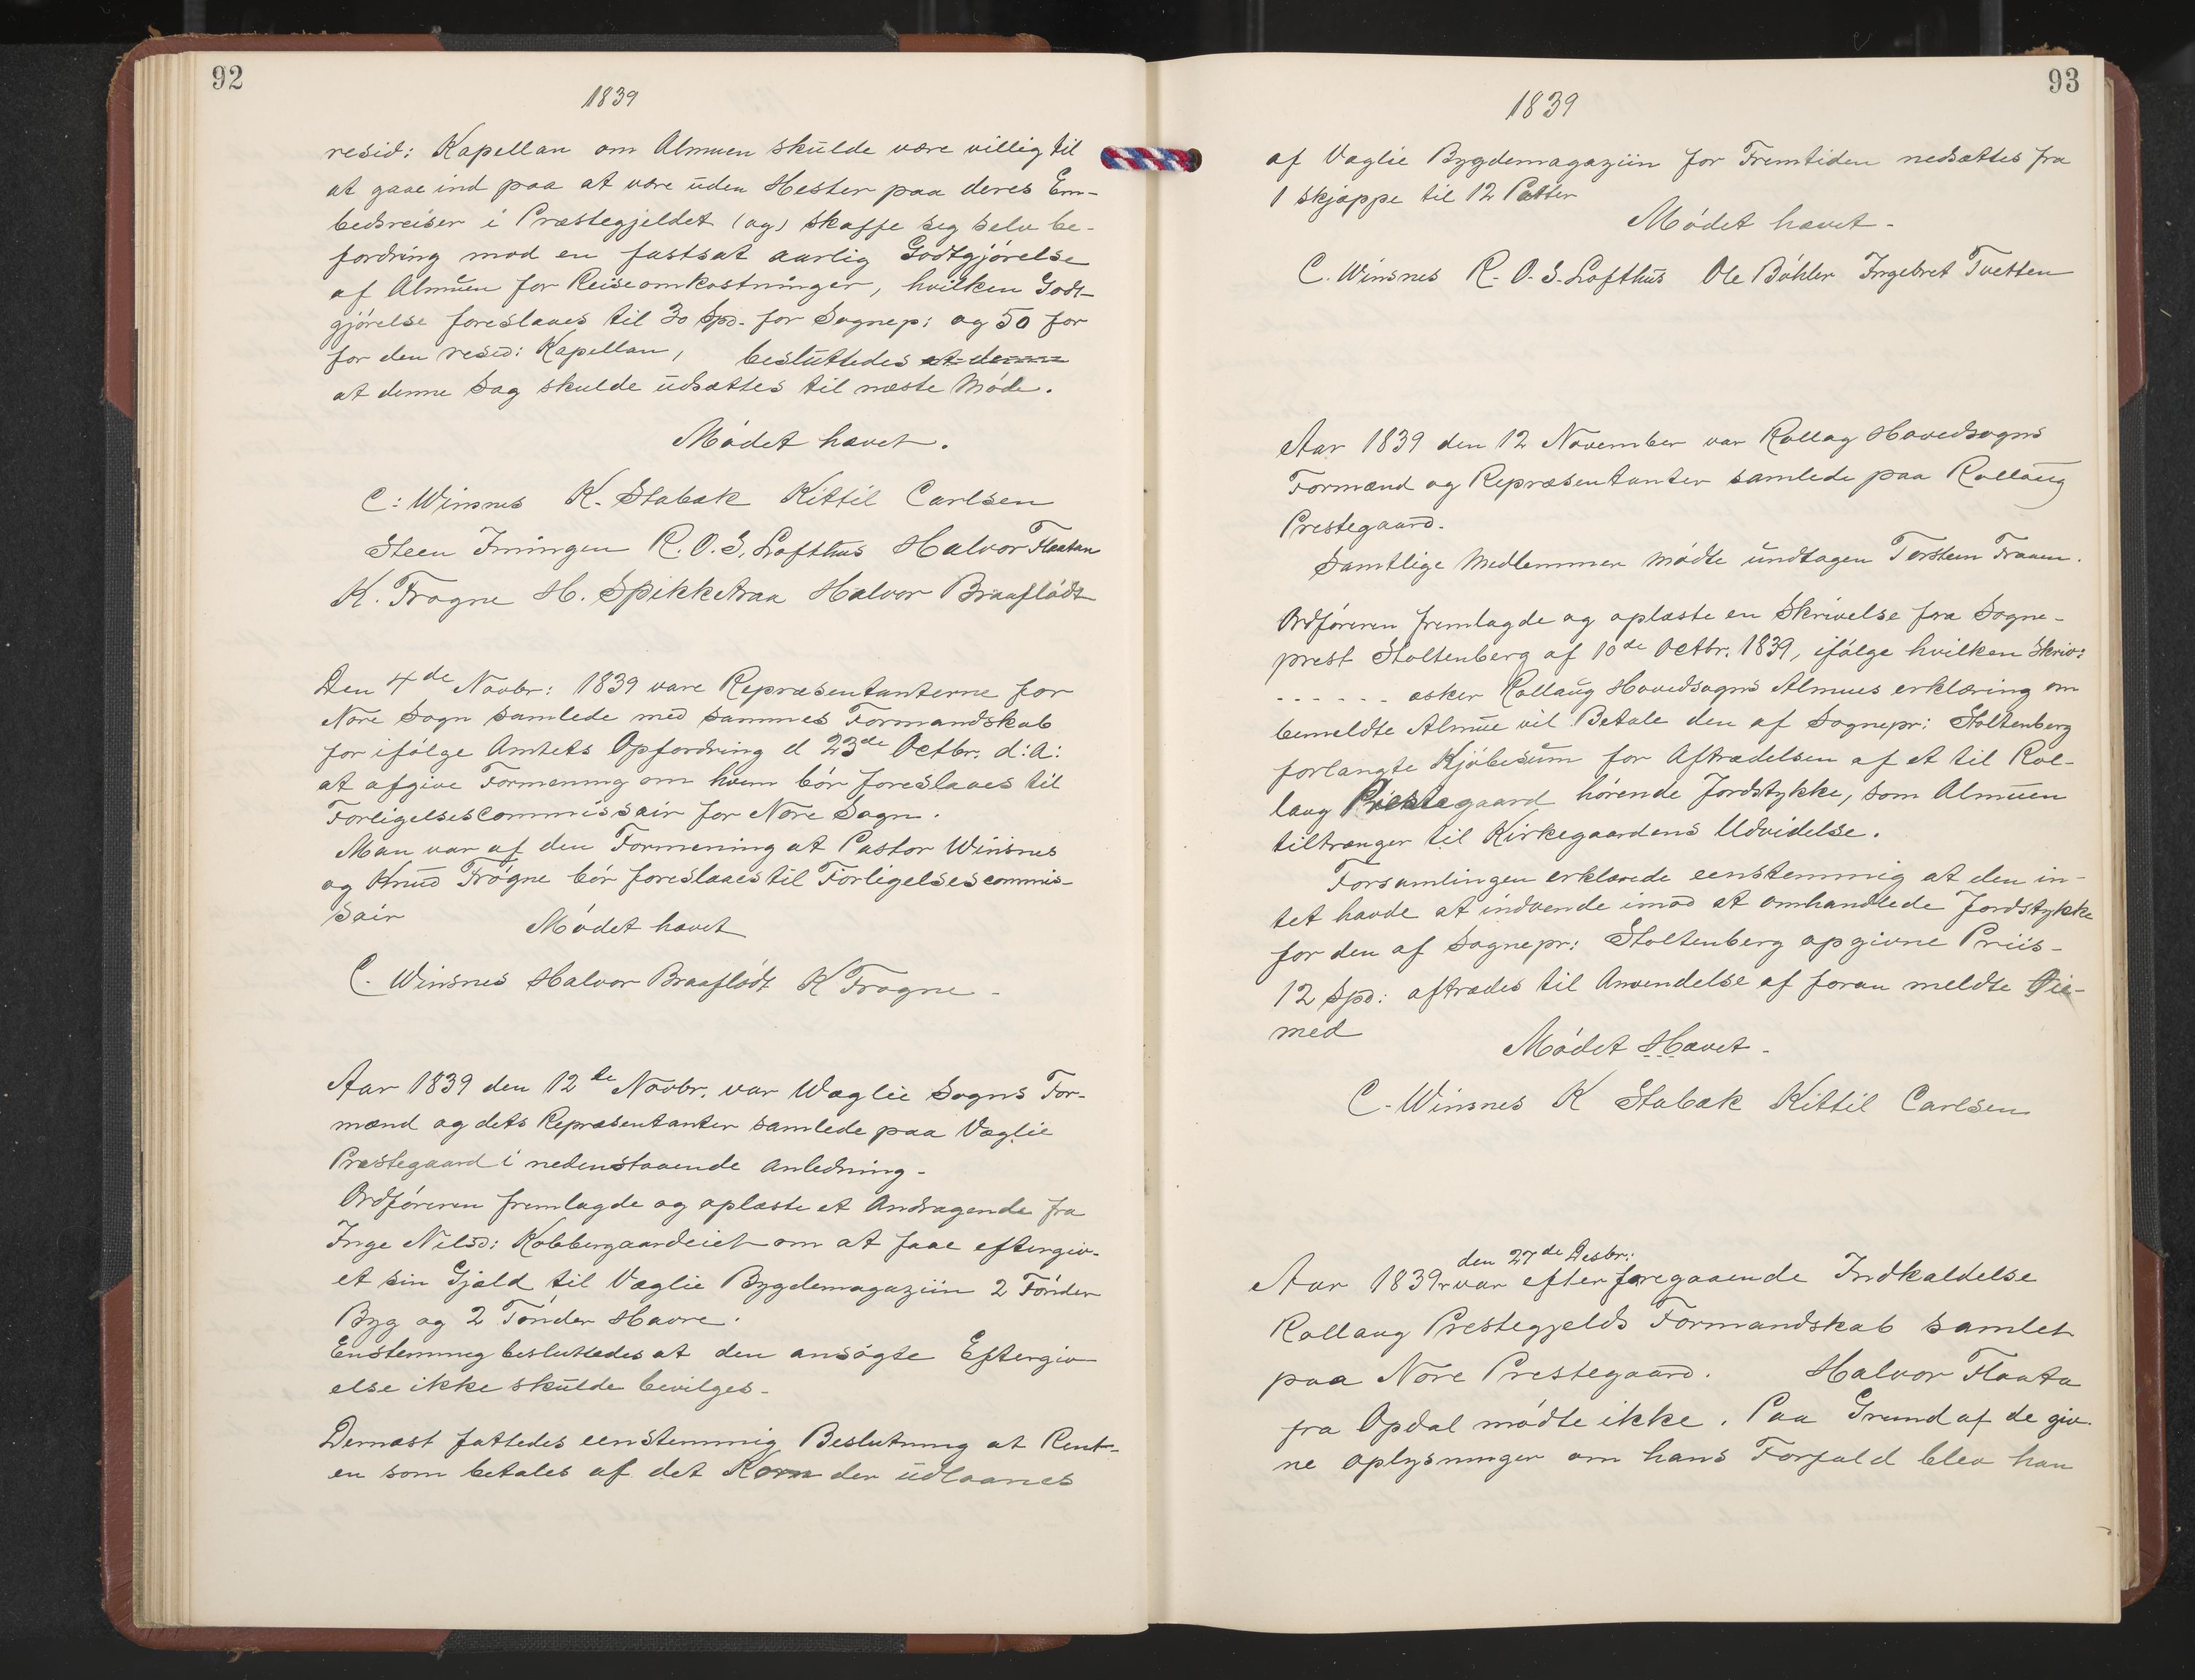 92
1839
resid: Kapellan om Almuen skulde være villig til
at gaae ind paa at være uden Hester paa deres Em-
bedsreiser i Præstegjeldet (og) skaffe seg selv be-
fordring mod en fastsat aarlig Godtgjörelse
af Almuen for Reiseomkostninger, hvilken Godt-
gjörelse foreslaaes til 30 Spd. for Sognep: og 50 for
for den resid: Kapellan, besluttedes at denne
at denne Sag skulde udsættes til næste Möde.
Mödet hævet.
C: Winsnes K. Stabæk Kittil Carlsen
Steen Imingen R. O. S. Lofthus Halvor Flaatan
K. Trogne H. Spikketraa Halvor Braaflödt
Den 4de Novbr: 1839 vare Repræsentanterne for
Nore Sogn samlede med sammes Formandskab
for ifölge Amtets Opfordring d 23de Octbr. d:A:
at afgive Formening om hvem bör foreslaaes til
Forligelsescommissair for Nore Sogn.
Man var af den Formening at Pastor Winsnes
og Knud Trögne bör foreslaaes til Forligelsescommis-
sair
Mödet hævet
C. Winsnes Halvor Braaflödt K Trogne -
Aar 1839 den 12te Novbr. var Wæglie Sogns For-
mænd og dets Repræsentanter samlede paa Væglie
Præstegaard i nedenstaaende Anledning.
Ordföreren fremlagde og oplæste et Andragende fra
Inge Nilsd: Kobbergaardeiet om at faae eftergiv-
et sin Gjæld til Væglie Bygdemagaziin 2 Tönder
Byg og 2 Tönder Havre.
Enstemmig besluttedes at den ansögte Eftergiv
else ikke skulde bevilges.
Dernæst fattedes eenstemmig Beslutning at Rent-
en som betales af det Korn der udlaanes
93
1839
af Væglie Bygdemagaziin for Fremtiden nedsættes fra
1 skjæppe til 12 Potter
Mödet hævet -
C. Winsnes R. O. S. Lofthus Ole Böhler Ingebret Tvetten
Aar 1839 den 12 November var Rollag Hovedsogns
Formænd og Repræsentanter samlede paa Rollaug
Prestegaard.
Samtlige Medlemmer mödte undtagen Torstein Fraaen.
Ordföreren fremlagde og oplæste en Skrivelse fra Sogne-
prest Stoltenberg af 10de Octbr. 1839, ifölge hvilken Skriv:
- - - - - - æsker Rollaug Hovedsogns Almues erklæring om
bemeldte Almue vil Betale den af Sognepr: Stoltenberg
forlangte Kjöbesum for Aftrædelsen af et til Rol-
laug Prestegaard hörende Jordstykke, som Almuen
tiltrænger til Kirkegaardens Udvidelse.
Forsamlingen erklærede eenstemmig at den in-
tet havde at indvende imod at omhandlede Jordstykke
for den af Sognepr: Stoltenberg opgivne Priis-
12 Spd: aftrædes til Anvendelse af foran meldte Öie-
med
Mödet Hævet -
C. Winsnes K Stabæk Kittil Carlsen
den 27de Desbr:
Aar 1839 var efter foregaaende Indkaldelse
Rollaug Prestegjelds Formandskab samlet
paa Nore Prestegaard. Halvor Flaata
fra Opdal mödte ikke. Paa Grund af de giv
ne oplysninger om hans Forfald blev han